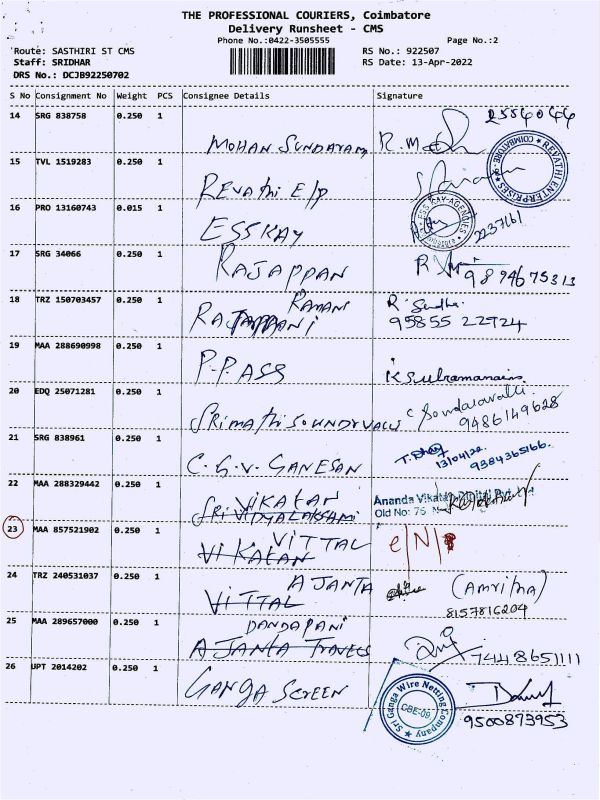 THE PROFESSIONAL COURIERS, Coimbatore
Delivery Runsheet - CMS
Phone No.:0422-3505555 Page No.:2
Route: SASTHIRI ST CMS RS No.: 922507
Staff: SRIDHAR RS Date: 13-Apr-2022
DRS No.: DCJB92250702
S No Consignment No Weight PCS Consignee Details Signature
14 SRG 838758 0.250 1 MOHAN SUNDARAM 2554044
COIMBATORE REVATHI ENTERPRISES
15 TVL 1519283 0.250 1 REVAthi E/P
16 PRO 13160743 0.015 1 ESSKAY ESS KAY AGENCIES 2237161
17 SRG 34066 0.250 1 RAJAPPAN 9894675313
18 TRZ 150703457 0.250 1 RAMANI R. Sudha
95855 22724
19 MAA 288690998 0.250 1 P.P.ASS K Subramaniam
20 EDQ 25071281 0.250 1 SRIMAthi SOUNDYVALLI Soundaravalli
9486149628
21 SRG 838961 0.250 1 C.G.V. GANESAN 13/04/22 9384365166
22 MAA 288329442 0.250 1 VIKATAN Ananda Vikatan Digital
SRI VIDYALAKSHMI Old No: 75
23 MAA 857521902 0.250 1 VITTAL
VIKATAN
24 TRZ 240531037 0.250 1 AJANTA (AMRITHA)
VITTAL 8157816204
25 MAA 289657000 0.250 1 DANDAPANI
AJANTA TRAVELS 7448651111
26 UPT 2014202 0.250 1 GANGA SCREEN
Sri Ganga Wire Netting Company CBE-09 9500873953